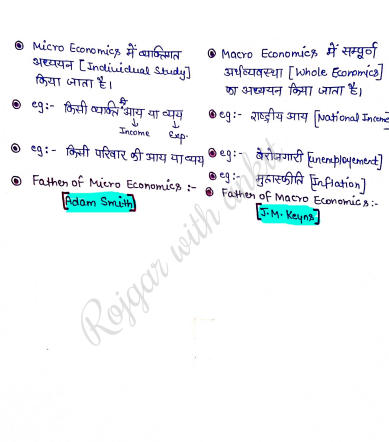 Micro Economics में व्यक्तिगत
अध्ययन [Individual Study]
किया जाता है।
eg:- किसी व्यक्ति की आय या व्यय
Income Exp.
eg:- किसी परिवार की आय या व्यय
Father of Micro Economics :-
[Adam Smith]
Macro Economics में सम्पूर्ण
अर्थव्यवस्था [Whole Economics]
का अध्ययन किया जाता है।
eg:- राष्ट्रीय आय [National Income
eg:- बेरोजगारी [Unemployement]
eg:- मुद्रास्फीति [Inflation]
Father of Macro Economics:-
[J.M. Keyns]
Rojgar with ankit